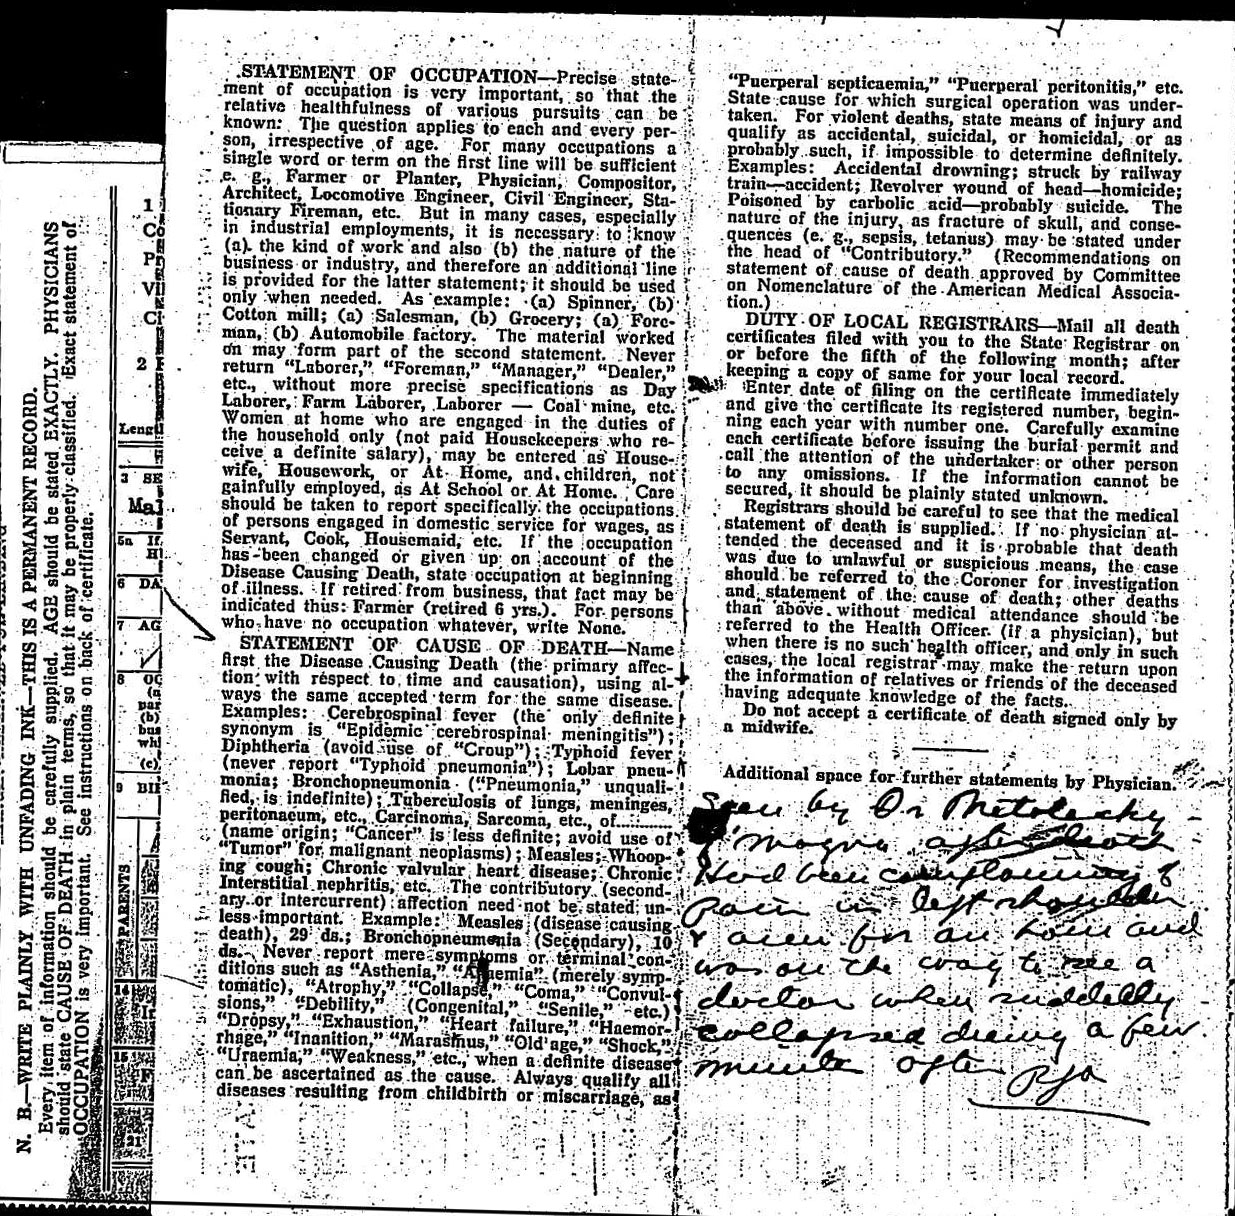 STATEMENT OF OCCUPATION—Precise state-
ment of occupation is very important, so that the
relative healthfulness of various pursuits can be
known: The question applies to each and every per-
son, irrespective of age. For many occupations a
single word or term on the first line will be sufficient
e. g., Farmer or Planter, Physician, Compositor,
Architect, Locomotive Engineer, Civil Engineer, Sta-
tionary Fireman, etc. But in many cases, especially
in industrial employments, it is necessary to know
(a) the kind of work and also (b) the nature of the
business or industry, and therefore an additional line
is provided for the latter statement; it should be used
only when needed. As example: (a) Spinner, (b)
Cotton mill; (a) Salesman, (b) Grocery; (a) Fore-
man, (b) Automobile factory. The material worked
on may form part of the second statement. Never
return "Laborer," "Foreman," "Manager," "Dealer,"
etc., without more precise specifications as Day
Laborer, Farm Laborer, Laborer — Coal mine, etc.
Women at home who are engaged in the duties of
the household only (not paid Housekeepers who re-
ceive a definite salary), may be entered as House-
wife, Housework, or At Home, and children, not
gainfully employed, as At School or At Home. Care
should be taken to report specifically the occupations
of persons engaged in domestic service for wages, as
Servant, Cook, Housemaid, etc. If the occupation
has been changed or given up on account of the
Disease Causing Death, state occupation at beginning
of illness. If retired from business, that fact may be
indicated thus: Farmer (retired 6 yrs.). For persons
who have no occupation whatever, write None.
STATEMENT OF CAUSE OF DEATH—Name
first the Disease Causing Death (the primary affec-
tion with respect to time and causation), using al-
ways the same accepted term for the same disease.
Examples: Cerebrospinal fever (the only definite
synonym is "Epidemic cerebrospinal meningitis");
Diphtheria (avoid use of "Croup"); Typhoid fever
(never report "Typhoid pneumonia"); Lobar pneu-
monia; Bronchopneumonia ("Pneumonia," unquali-
fied, is indefinite); Tuberculosis of lungs, meninges,
peritonaeum, etc., Carcinoma, Sarcoma, etc., of..........
(name origin; "Cancer" is less definite; avoid use of
"Tumor" for malignant neoplasms); Measles; Whoop-
ing cough; Chronic valvular heart disease; Chronic
Interstitial nephritis, etc. The contributory (second-
ary or intercurrent) affection need not be stated un-
less important. Example: Measles (disease causing
death), 29 ds.; Bronchopneumonia (Secondary), 10
ds. Never report mere symptoms or terminal con-
ditions such as "Asthenia," "Anaemia" (merely symp-
tomatic), "Atrophy," "Collapse," "Coma," "Convul-
sions," "Debility," (Congenital," "Senile," etc.)
"Dropsy," "Exhaustion," "Heart failure," "Haemor-
rhage," "Inanition," "Marasmus," "Old age," "Shock,"
"Uraemia," "Weakness," etc., when a definite disease
can be ascertained as the cause. Always qualify all
diseases resulting from childbirth or miscarriage, as
"Puerperal septicaemia," "Puerperal peritonitis," etc.
State cause for which surgical operation was under-
taken. For violent deaths, state means of injury and
qualify as accidental, suicidal, or homicidal, or as
probably such, if impossible to determine definitely.
Examples: Accidental drowning; struck by railway
train—accident; Revolver wound of head—homicide;
Poisoned by carbolic acid—probably suicide. The
nature of the injury, as fracture of skull, and conse-
quences (e. g., sepsis, tetanus) may be stated under
the head of "Contributory." (Recommendations on
statement of cause of death approved by Committee
on Nomenclature of the American Medical Associa-
tion.)
DUTY OF LOCAL REGISTRARS—Mail all death
certificates filed with you to the State Registrar on
or before the fifth of the following month; after
keeping a copy of same for your local record.
Enter date of filing on the certificate immediately
and give the certificate its registered number, begin-
ning each year with number one. Carefully examine
each certificate before issuing the burial permit and
call the attention of the undertaker or other person
to any omissions. If the information cannot be
secured, it should be plainly stated unknown.
Registrars should be careful to see that the medical
statement of death is supplied. If no physician at-
tended the deceased and it is probable that death
was due to unlawful or suspicious means, the case
should be referred to the Coroner for investigation
and statement of the cause of death; other deaths
than above without medical attendance should be
referred to the Health Officer (if a physician), but
when there is no such health officer, and only in such
cases, the local registrar may make the return upon
the information of relatives or friends of the deceased
having adequate knowledge of the facts.
Do not accept a certificate of death signed only by
a midwife.
Additional space for further statements by Physician.
Seen by Dr
Magna after death
Had been complaining of
pain in left shoulder
& arm for an hour and
was on the way to see a
doctor when suddenly
collapsed dieing a few
minute after
N. B.—WRITE PLAINLY WITH UNFADING INK—THIS IS A PERMANENT RECORD.
Every item of information should be carefully supplied. AGE should be stated EXACTLY. PHYSICIANS
should state CAUSE OF DEATH in plain terms, so that it may be properly classified. Exact statement of
OCCUPATION is very important. See instructions on back of certificate.
1
Co
Pr
Vi
Ci
2
Lengt
3 SE
Mal
5a If
H
6 DA
7 AG
8 OC
(a
par
(b)
bus
whi
(c)
9 BII
PARENTS
14
15
21